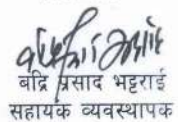 बद्रि प्रसाद भट्टराई
सहायक व्यवस्थापक